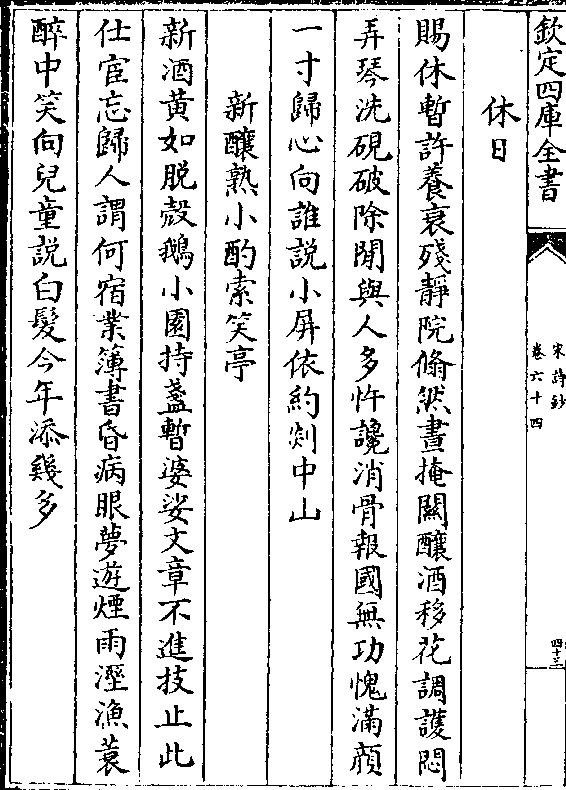 欽定四庫全書
宋詩鈔
卷六十四
四十三
休日
賜休暫許養衰殘靜院翛然晝掩關釀酒移花調護悶
弄琴洗硯破除閒與人多忤讒消骨報國無功愧滿顏
一寸歸心向誰説小屏依約剡中山
新釀熟小酌索笑亭
新酒黃如脱殻鵝小園持盞暫婆娑文章不進技止此
仕宦忘歸人謂何宿業簿書昏病眼夢遊煙雨溼漁蓑
醉中笑向兒童説白髮今年添幾多